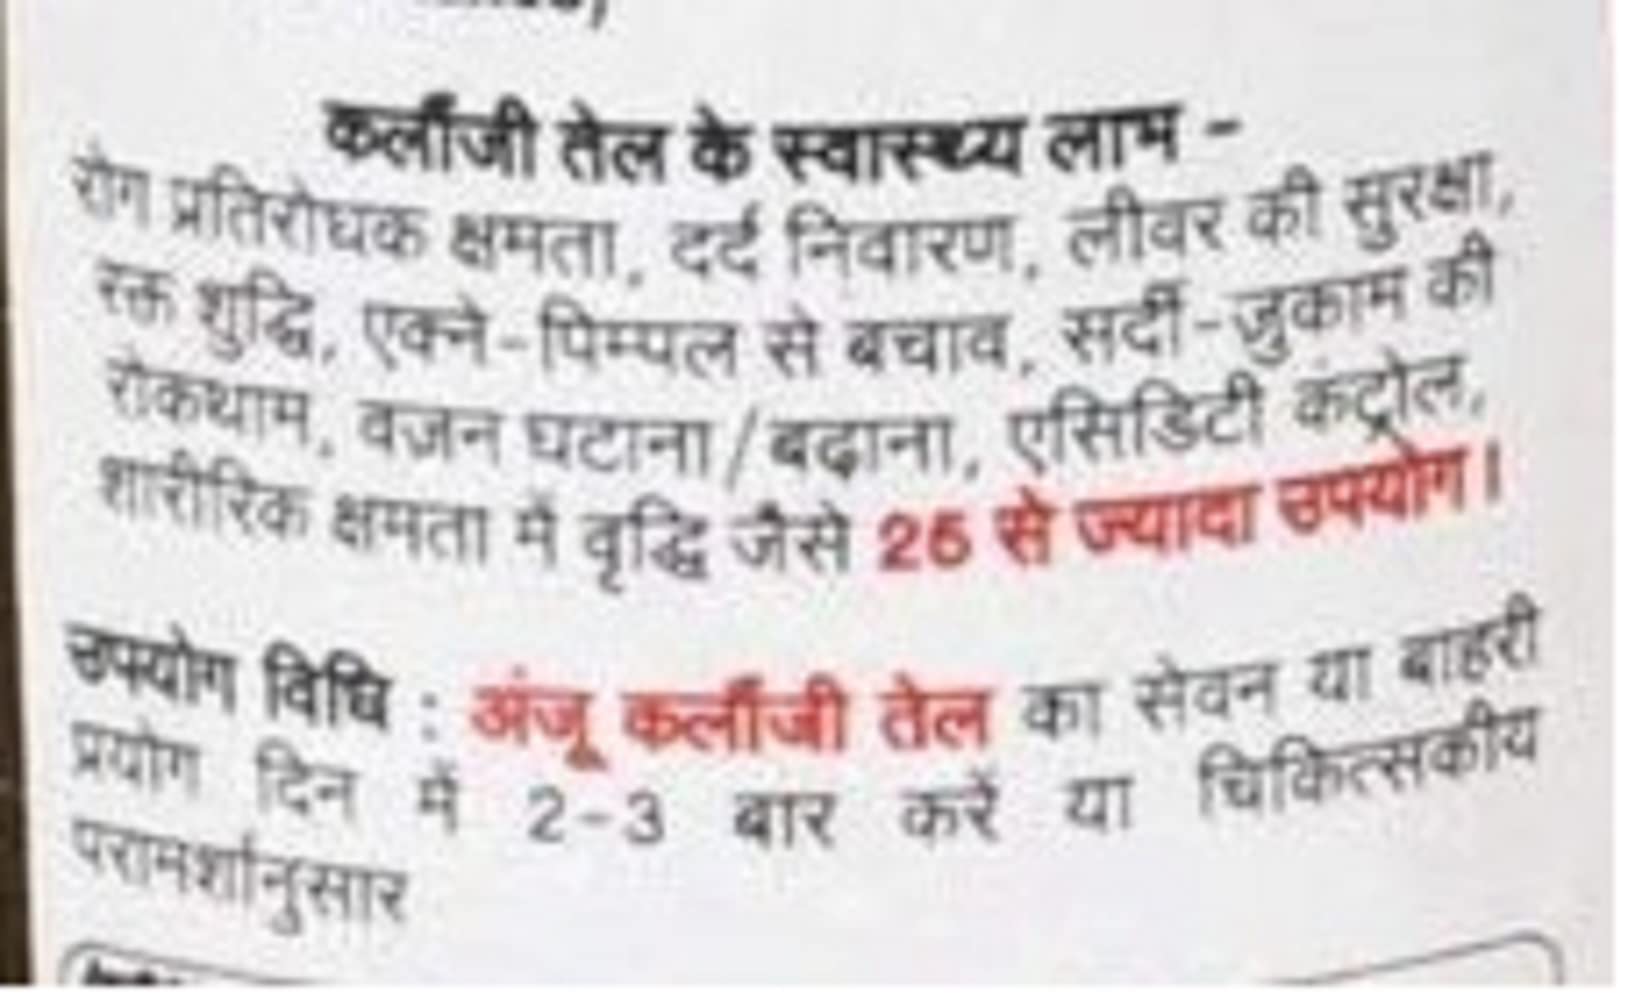 कलौंजी तेल के स्वास्थ्य लाभ -
रोग प्रतिरोधक क्षमता, दर्द निवारण, लीवर की सुरक्षा,
रक्त शुद्धि, एक्ने-पिम्पल से बचाव, सर्दी-जुकाम की
रोकथाम, वज़न घटाना/बढ़ाना, एसिडिटी कंट्रोल,
शारीरिक क्षमता में वृद्धि जैसे 25 से ज्यादा उपयोग।
उपयोग विधि : अंजू कलौंजी तेल का सेवन या बाहरी
प्रयोग दिन में 2-3 बार करें या चिकित्सकीय
परामर्शानुसार